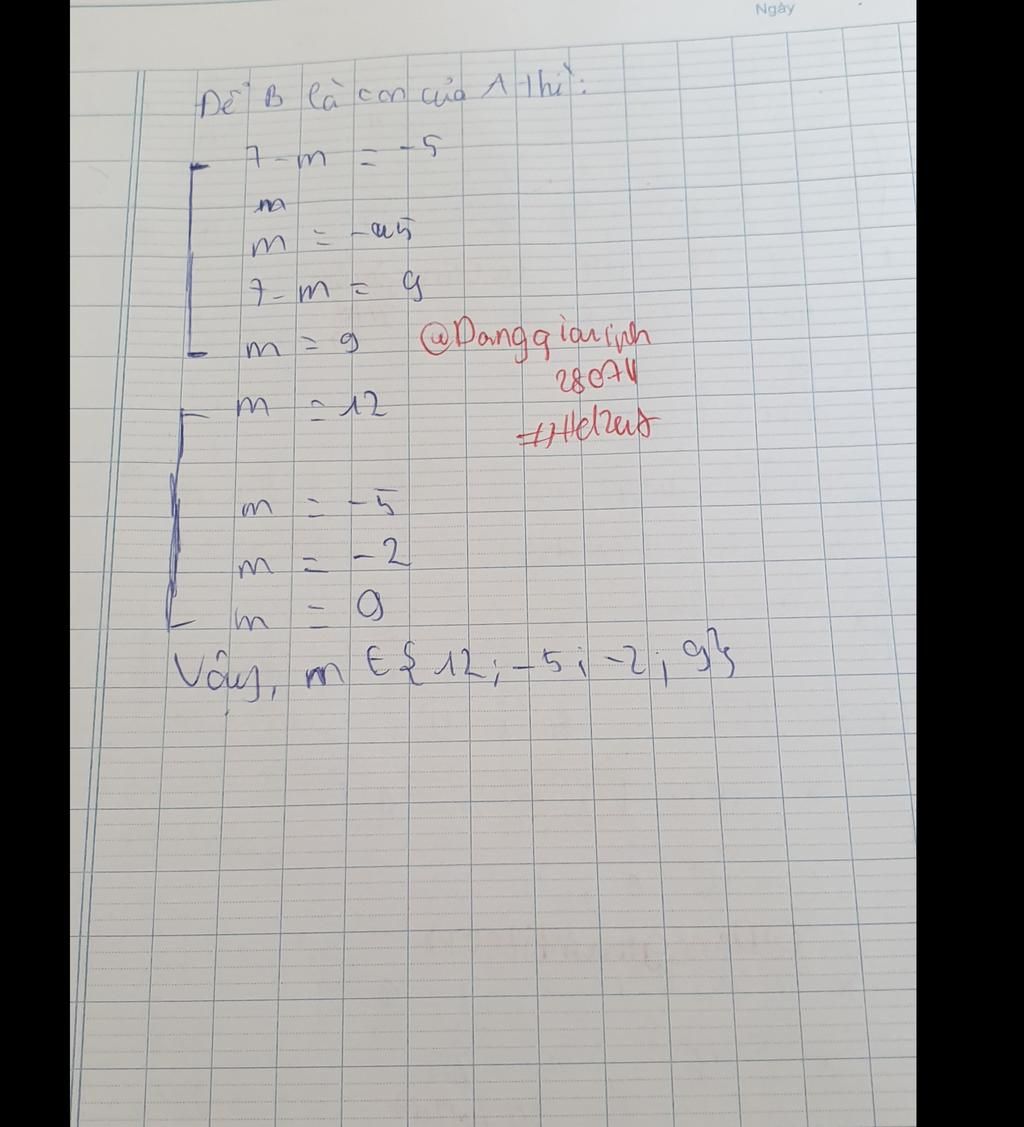 Ngày
Để B là con của A thì:
7 - m = -5
m
m = -5
7 - m = 9
m = 9 @Danggiarinh
28074
m = 12
m = -5
m = -2
m = 9
Vậy, m ∈ { 12; -5; -2; 9}